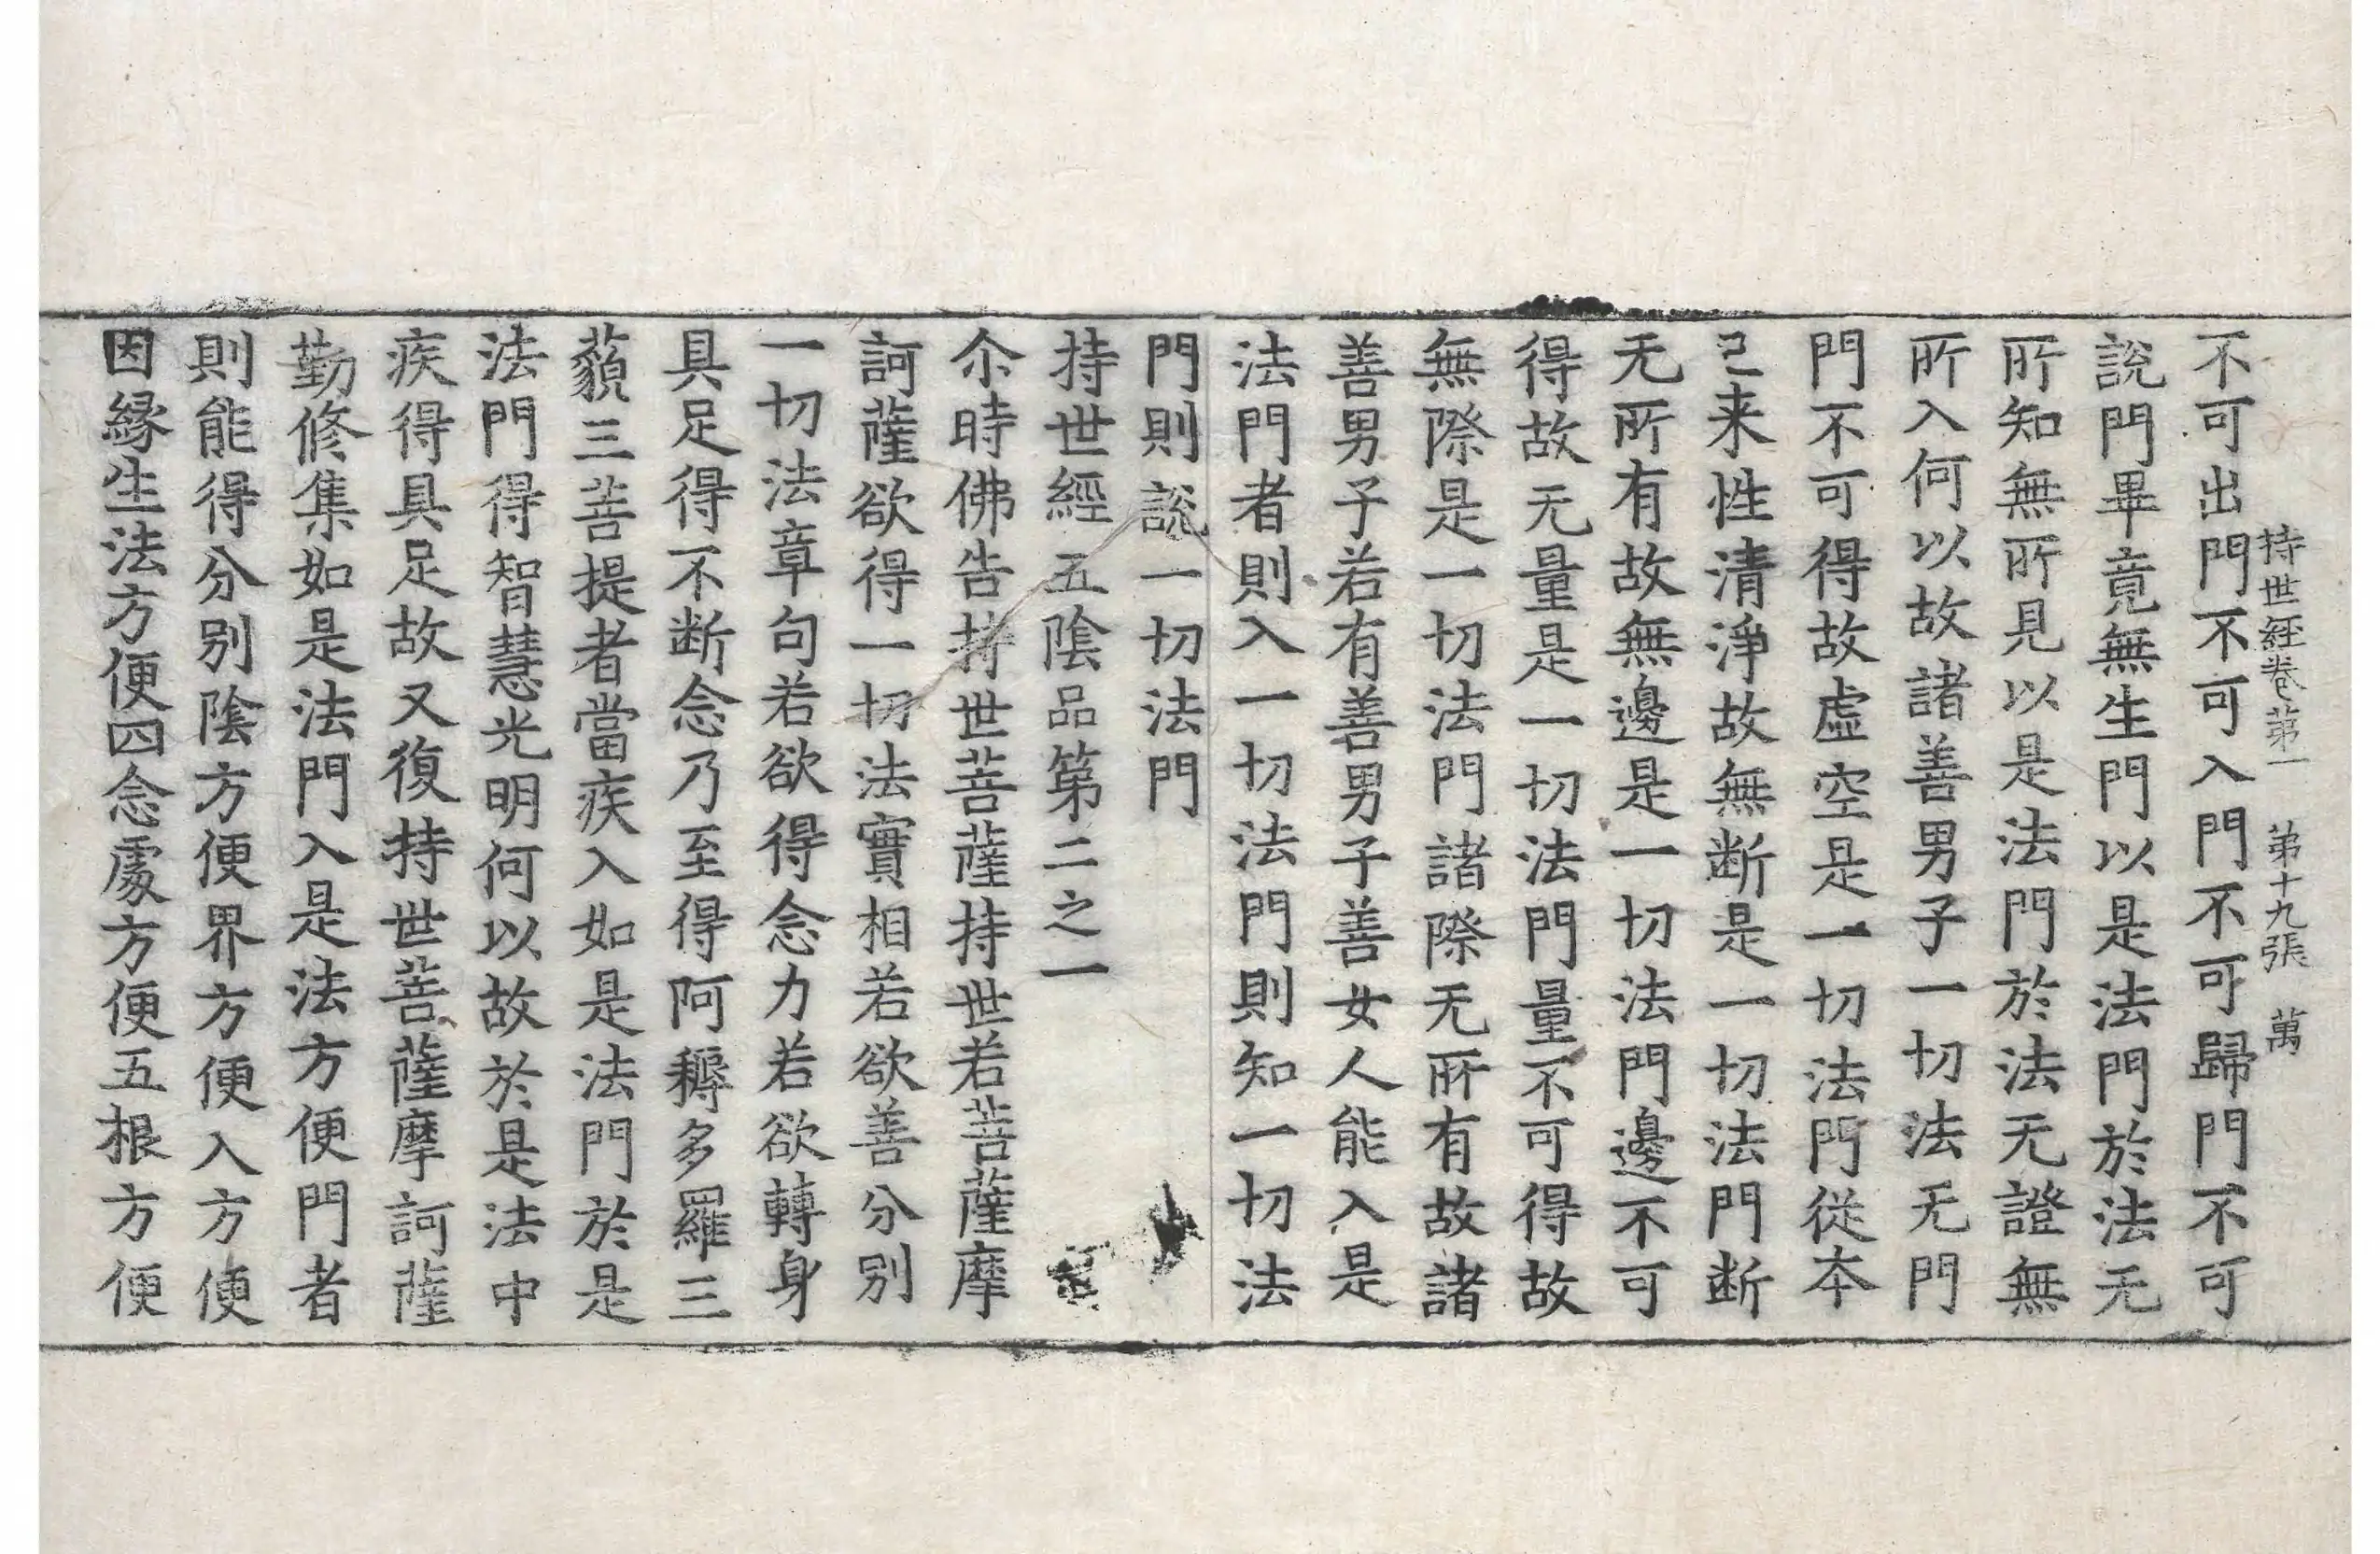 持世経卷第一　第十九張　萬
不可出門不可入門不可歸門不可
說門畢竟無生門以是法門於法无
所知無所見以是法門於法无證無
所入何以故諸善男子一切法无門
門不可得故虛空是一切法門從夲
已来性清淨故無断是一切法門断
无所有故無邊是一切法門邊不可
得故无量是一切法門量不可得故
無際是一切法門諸際无所有故諸
善男子若有善男子善女人能入是
法門者則入一切法門則知一切法
門則說一切法門
持世經五陰品第二之一
尒時佛告持世菩薩持世若菩薩摩
訶薩欲得一切法實相若欲善分別
一切法章句若欲得念力若欲轉身
具足得不断念乃至得阿耨多羅三
藐三菩提者當疾入如是法門於是
法門得智慧光明何以故於是法中
疾得具足故又復持世菩薩摩訶薩
勤修集如是法門入是法方便門者
則能得分別陰方便界方便入方便
因緣生法方便四念處方便五根方便